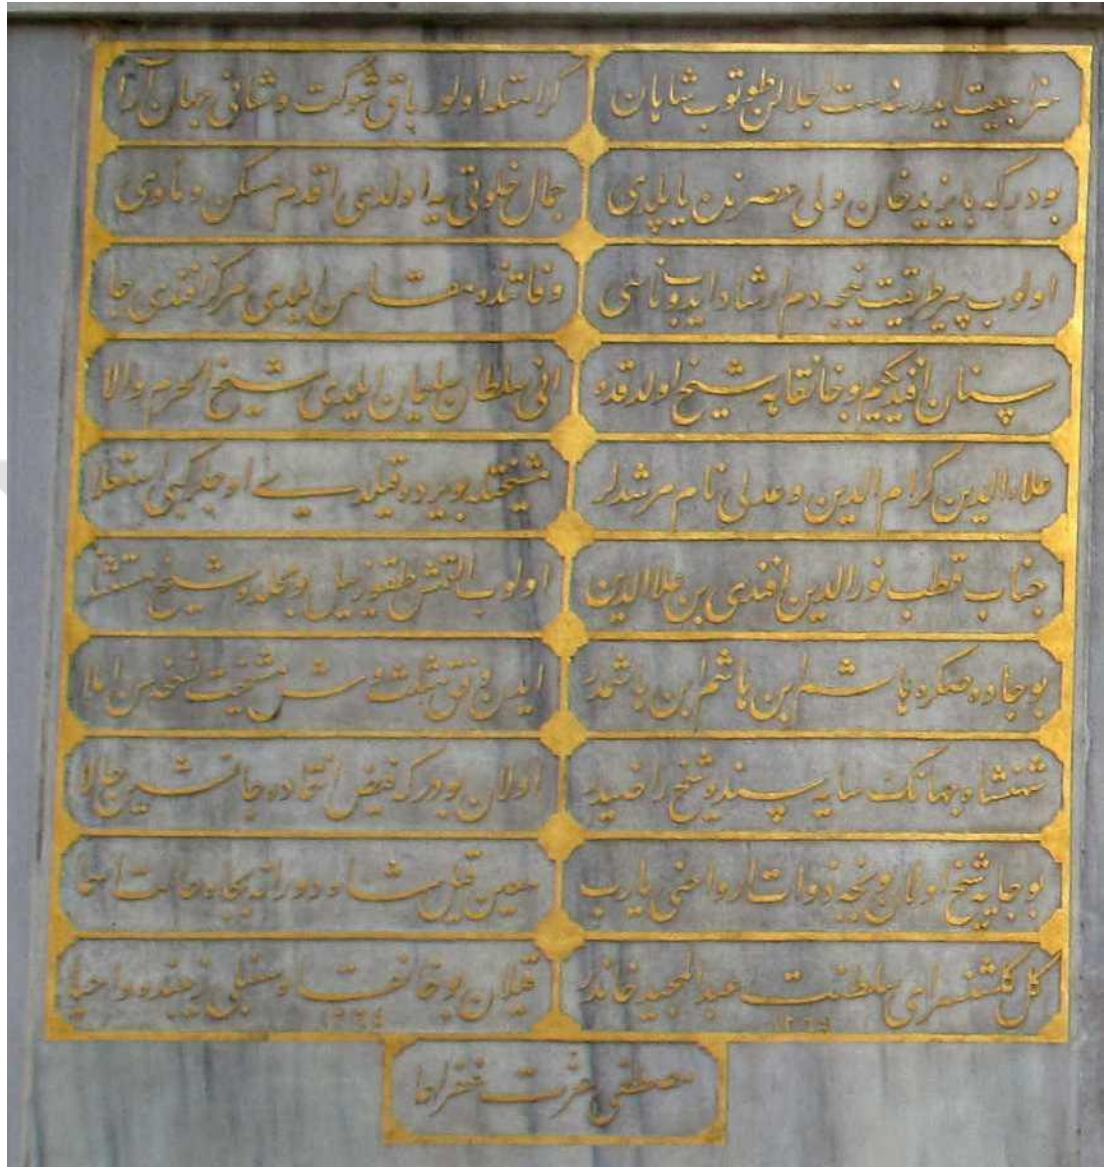 سزا بیعت ایدرسه دست اجلالن طوتوب شاهان
اولور باقی شوكت و شانی جهان آرا
بودر كه بایزید خان ولی عصرنده یاپلدی
جمال خلوتی یه اولدی اقدم مسكن و مأوی
اولوب پیر طریقت نیجه دم ارشاد ایدوب ناسی
وفاتنده مقامن ایلدی مركز افندی جا
سنان افندیكیم بو خانقاهه شیخ اولدقده
انی سلطان سلیمان ایلدی شیخ الحرم والا
علاء الدین كرام الدین و عدلی نام مرشدلر
مشیختله بو یرده كبی استعلا
جناب قطب نورالدین افندی بن علاالدین
اولوب التمش طقوز ییل بو محلده شیخ مستثنا
بو جاده صكره هاشم ابن هاشم ابن هاشمدر
ایدن وفق مثلث وش مشیخت نسخه سن املا
شهنشاه جهانك سایه سنده شیخ راضیدر
اولان بودر كه فیض انتماده جانشین حالا
بو جایه شیخ اولان بونجه ذوات ارواحنی یارب
معین قیل شاه دورانه بجاه حالت اسما
كل كلشنسرای سلطنت عبدالمجید خاندر
قیلان بو خانقاه سنبلی زیبنده و احیا
مصطفی عزت غفرلهما